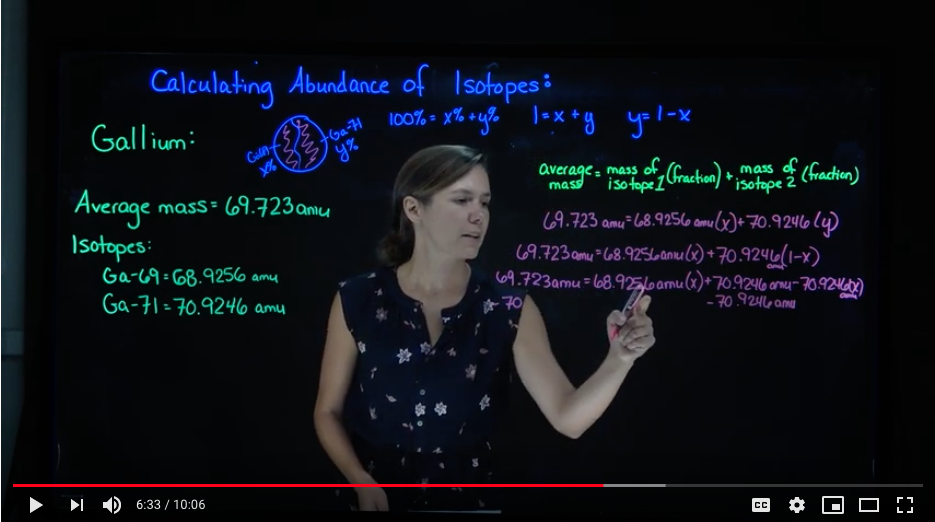 Calculating Abundance of Isotopes:
100% = x% + y% 1 = x + y y = 1 - x
Gallium:
Ga-71
y%
x%
average mass = mass of isotope 1 (fraction) + mass of isotope 2 (fraction)
Average mass = 69.723 amu
69.723 amu = 68.9256 amu (x) + 70.9246 (y)
Isotopes:
69.723 amu = 68.9256 amu (x) + 70.9246 amu (1-x)
Ga-69 = 68.9256 amu
69.723 amu = 68.9256 amu (x) + 70.9246 amu - 70.9246 (x) amu
Ga-71 = 70.9246 amu
-70
-70.9246 amu
6:33 / 10:06
CC